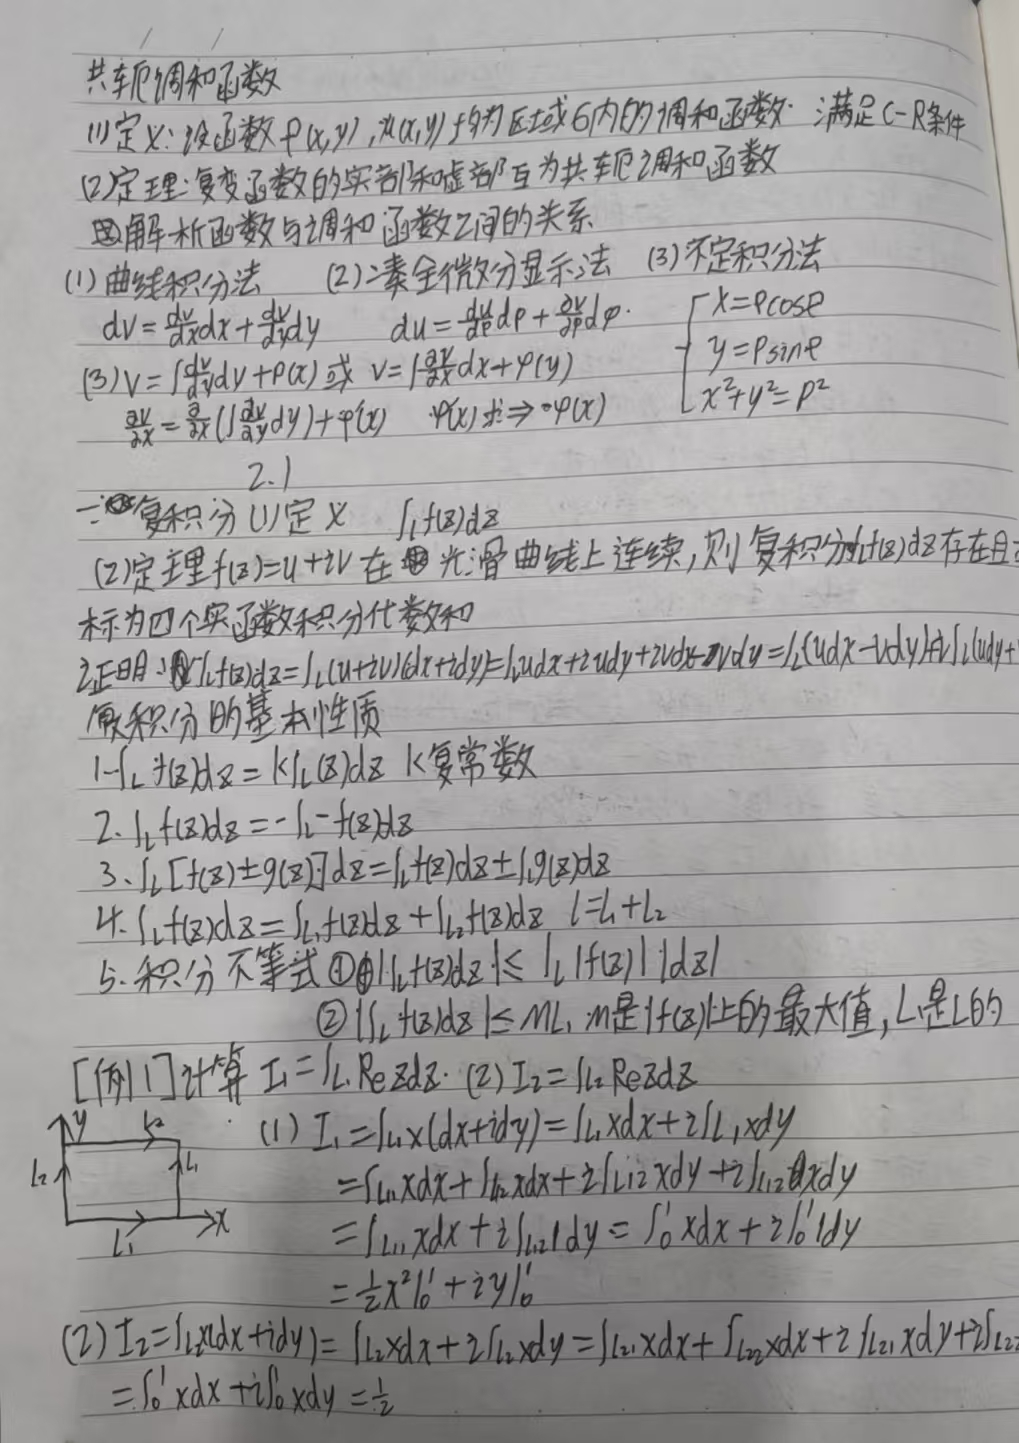 共轭调和函数
(1)定义:设函数φ(x,y),u(x,y)均为区域G内的调和函数. 满足C-R条件
(2)定理:复变函数的实部和虚部互为共轭调和函数
四解析函数与调和函数之间的关系
(1)曲线积分法 (2)凑全微分显示法 (3)不定积分法
dv=∂v/∂x dx+∂v/∂y dy du=∂u/∂ρ dρ+∂u/∂φ dφ. x=ρcosφ
y=ρsinφ
(3)v=∫∂v/∂y dy+φ(x)或 v=∫∂v/∂x dx+φ(y)
x²+y²=ρ²
∂v/∂x=∂/∂x(∫∂v/∂y dy)+φ'(x) φ'(x)求⇒φ(x)
2.1
一:复积分(1)定义 ∫l f(z)dz
(2)定理f(z)=u+iv在光滑曲线上连续,则复积分∫l f(z)dz存在且
标为四个实函数积分代数和
证明:∫L f(z)dz=∫L(u+iv)(dx+idy)=∫L udx+iudy+ivdx-vdy=∫L(udx-vdy)+i∫L(udy+
复积分的基本性质
1-∫L f(z)dz=k∫L(z)dz k复常数
2.∫L f(z)dz=-∫L-f(z)dz
3.∫L[f(z)±g(z)]dz=∫L f(z)dz±∫L g(z)dz
4.∫L f(z)dz=∫L1 f(z)dz+∫L2 f(z)dz l=L1+L2
5.积分不等式①|∫L f(z)dz|≤∫L|f(z)||dz|
②|∫L f(z)dz|≤ML, M是|f(z)|上的最大值,L是L的
[例1]计算 I1=∫L1 Rezdz. (2)I2=∫L2 Rezdz
y L2 L1 L2 L1 x
(1) I1=∫L1 x(dx+idy)=∫L1 xdx+i∫L1 xdy
=∫L11 xdx+∫L12 xdx+i∫L12 xdy+i∫L12 xdy
=∫L11 xdx+i∫L12 1dy=∫0^1 xdx+i∫0^1 1dy
=½x²|0^1+iy|0^1
(2)I2=∫L2 x(dx+idy)=∫L2 xdx+i∫L2 xdy=∫L21 xdx+∫L22 xdx+i∫L21 xdy+i∫L22
=∫0^1 xdx+i∫0^1 xdy=½